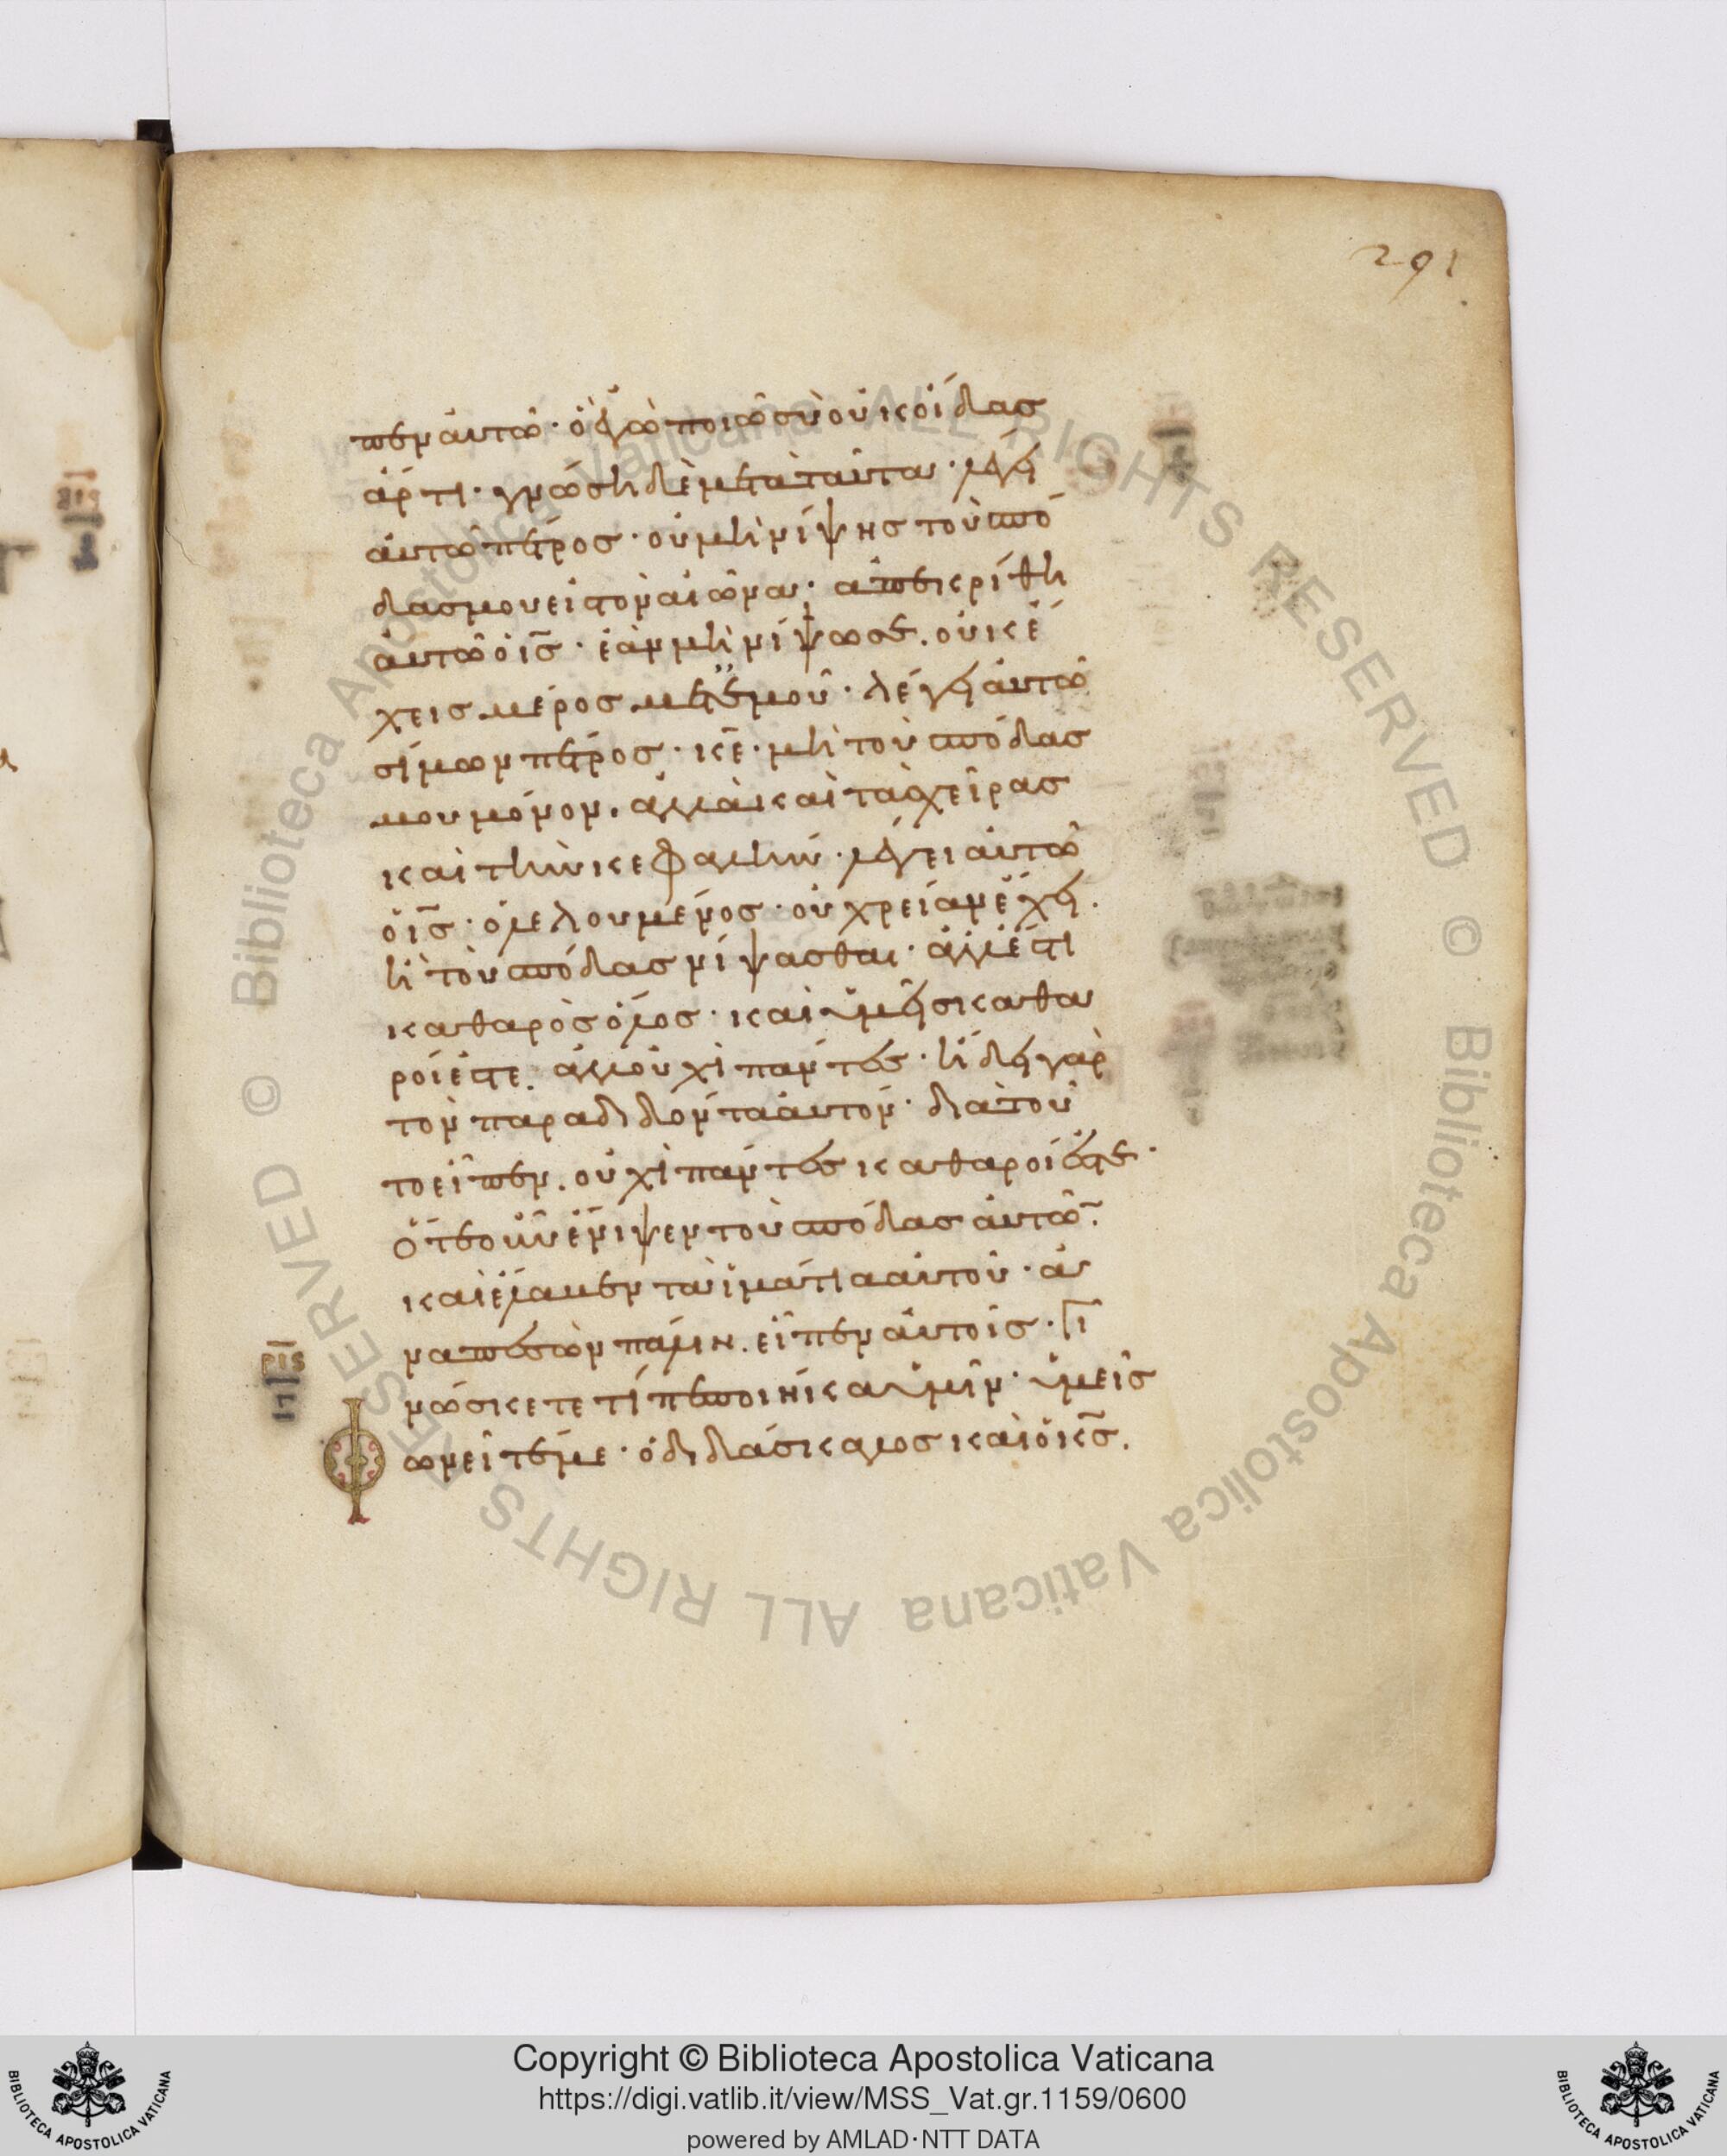 291
πεν αὐτῶ· ὃ ἐγὼ ποιῶ σὺ οὐκ οἶδας
ἄρτι· γνώση δὲ μετὰ ταῦτα· λέγει
αὐτῶ πέτρος· οὐ μὴ νίψης τοὺς πό
δας μου εἰς τὸν αἰῶνα· ἀπεκρίθη
αὐτῶ ὁ ις̅· ἐὰν μὴ νίψω σε. οὐκ ἔ
χεις μέρος μετ' ἐμοῦ· λέγει αὐτῶ
σίμων πέτρος· κε̅· μὴ τοὺς πόδας
μου μόνον. ἀλλὰ καὶ τὰς χεῖρας
καὶ τὴν κεφαλήν· λέγει αὐτῶ
ὁ ις̅· ὁ λελουμένος· οὐ χρείαν ἔχει.
ἢ τοὺς πόδας νίψασθαι· ἀλλ' ἔστι
καθαρὸς ὅλος· καὶ ὑμεῖς καθα
ροί ἐστε. ἀλλ' οὐχὶ πάντες· ἤδει γὰρ
τὸν παραδιδόντα αὐτόν· διατοῦ
το εἶπεν. οὐχὶ πάντες καθαροί ἐστε·
ὅτε οὖν ἔνιψεν τοὺς πόδας αὐτῶν·
καὶ ἔλαβεν τὰ ἱμάτια αὐτοῦ· ἀ
ναπεσὼν πάλιν. εἶπεν αὐτοῖς· Γι
νώσκετε τί πεποίηκα ὑμῖν· ὑμεῖς
ρις
Φωνεῖτέ με· ὁ διδάσκαλος καὶ ὁ κς̅.
Copyright © Biblioteca Apostolica Vaticana
https://digi.vatlib.it/view/MSS_Vat.gr.1159/0600
powered by AMLAD·NTT DATA
BIBLIOTECA APOSTOLICA VATICANA
BIBLIOTECA APOSTOLICA VATICANA
© Biblioteca Apostolica Vaticana ALL RIGHTS RESERVED
© Biblioteca Apostolica Vaticana ALL RIGHTS RESERVED